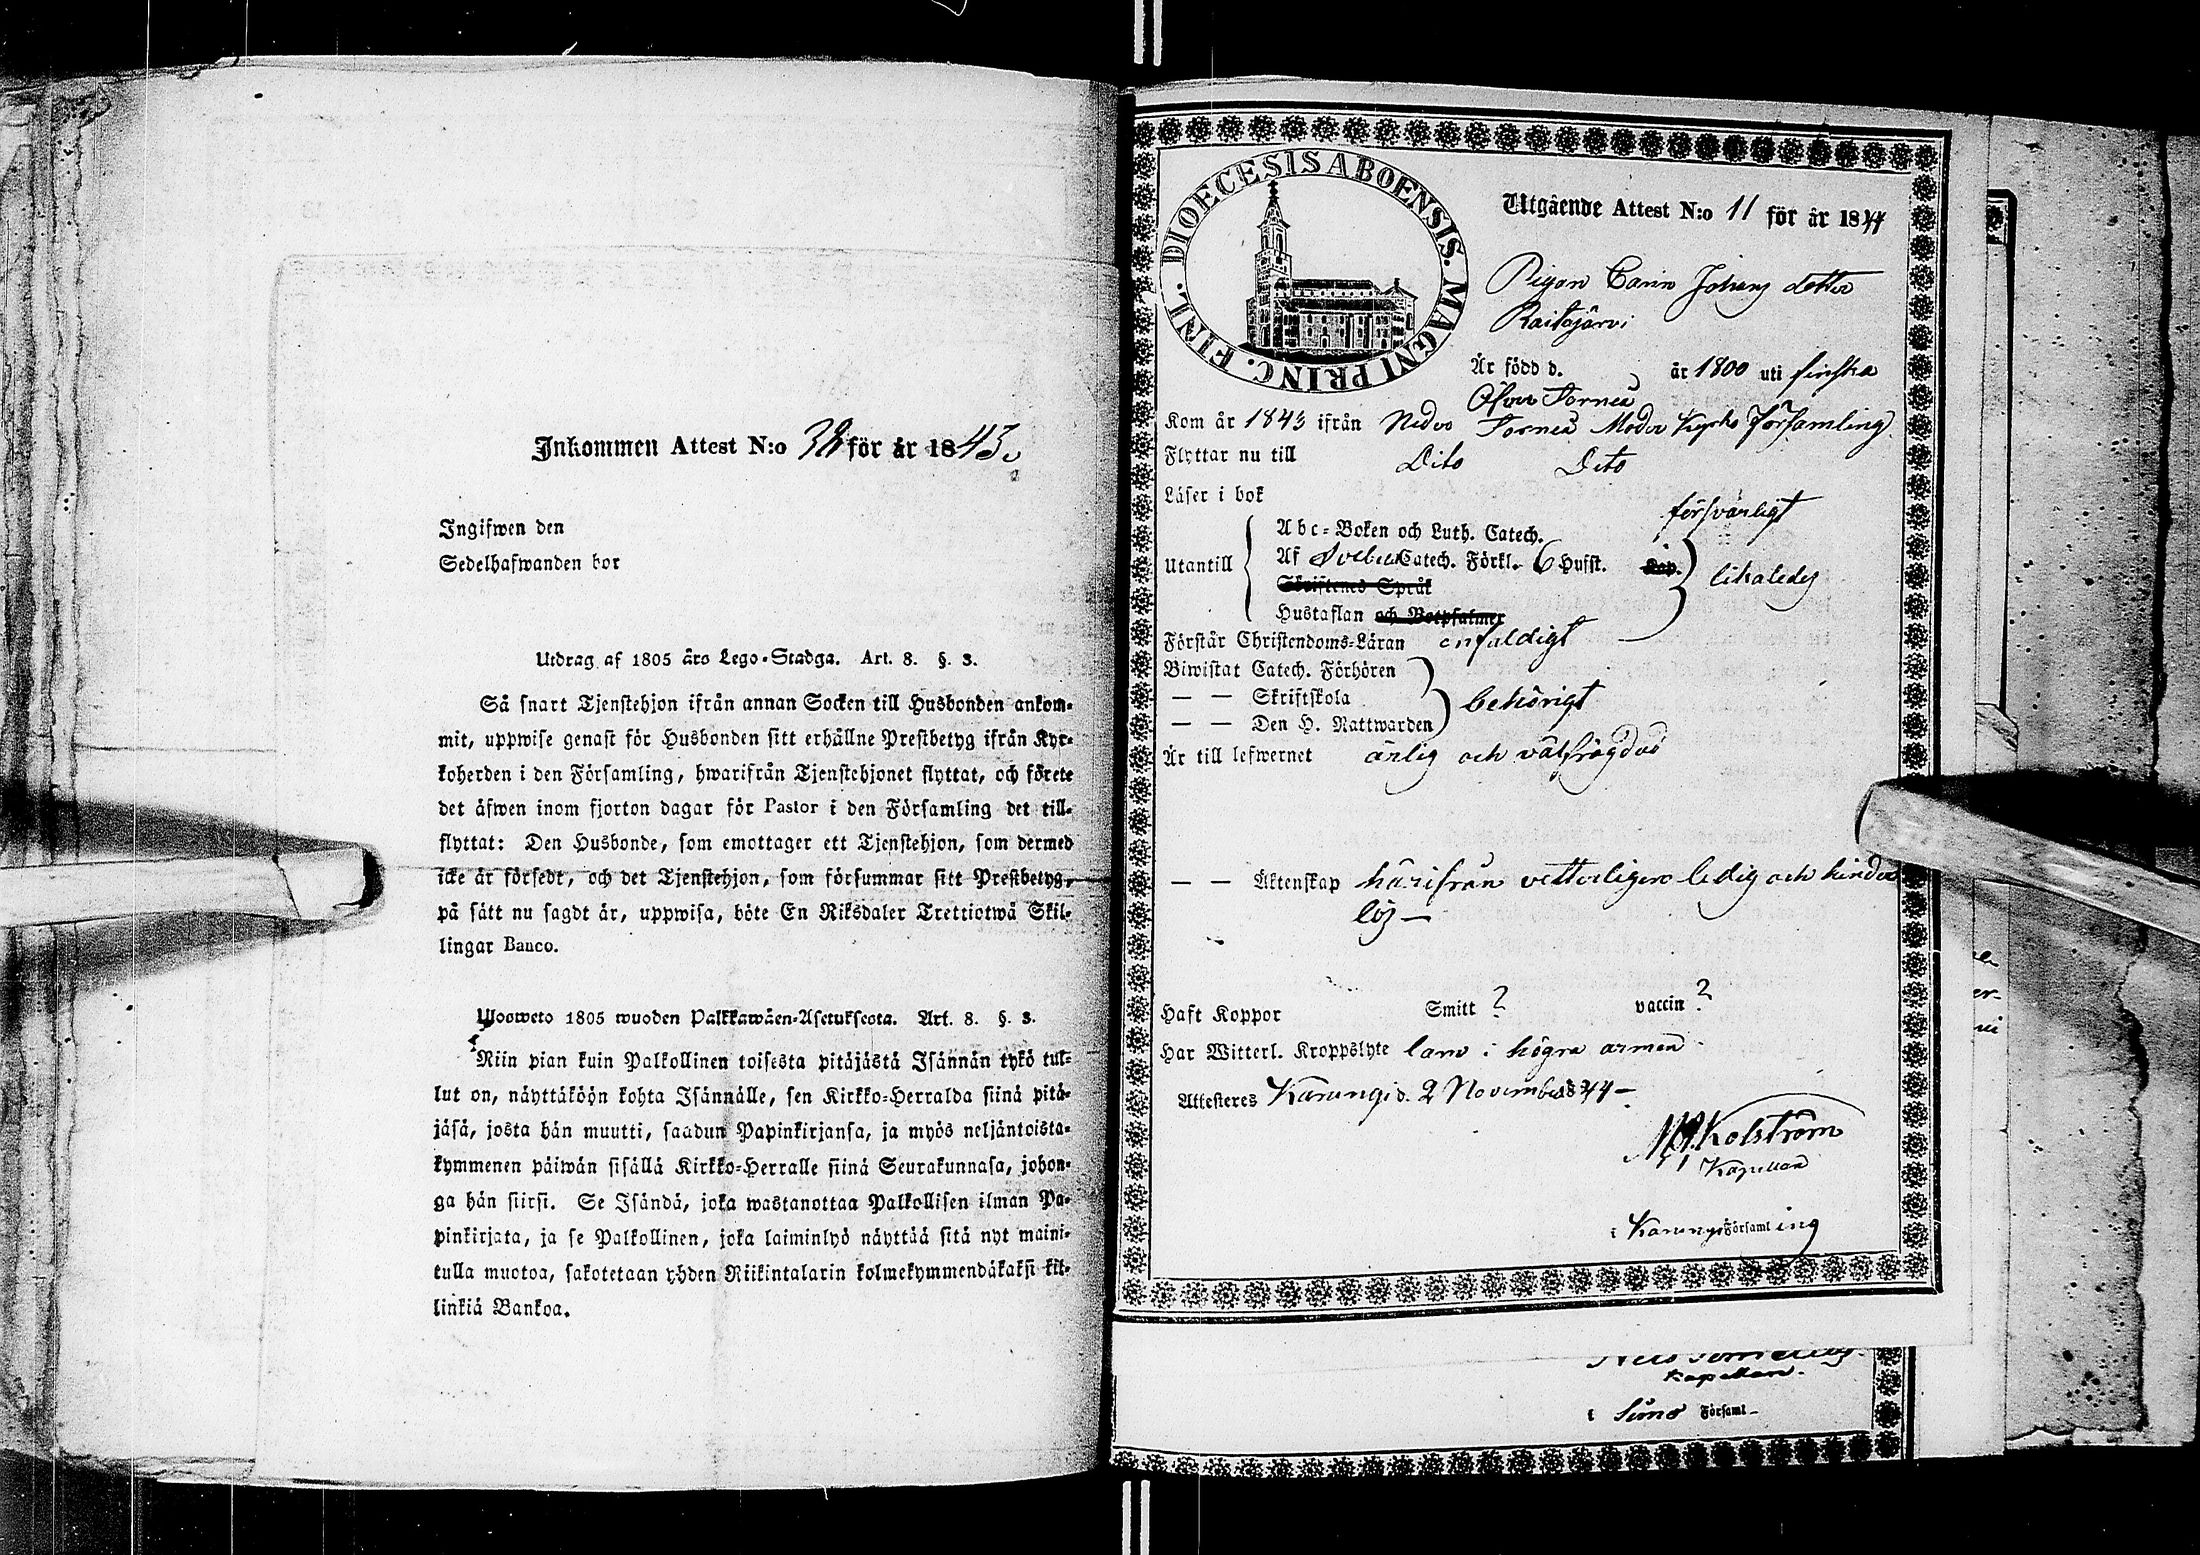 Inkommen Attest N:o 38 för år 1843.
Ingifwen den
Sedelhafwanden bor
Utdrag af 1805 års Lego-Stadga. Art. 8. §. 3.
Så snart Tjenstehjon ifrån annan Socken till Husbonden ankom-
mit, uppwise genast för Husbonden sitt erhållne Prestbetyg ifrån Kyr-
koherden i den Församling, hwarifrån Tjenstehjonet flyttat, och förete
det äfwen inom fjorton dagar för Pastor i den Församling det till-
flyttat: Den Husbonde, som emottager ett Tjenstehjon, som dermed
icke är försedt, och det Tjenstehjon, som försummar sitt Prestbetyg,
på sätt nu sagdt är, uppwisa, böte En Riksdaler Trettiotwå Skil-
lingar Banco.
Ulosweto 1805 wuoden Palkkawäen-Asetuksesta. Art. 8. §. 3.
Niin pian kuin Palkollinen toisesta pitäjästä Isännän tykö tul-
lut on, näyttäköön kohta Isännälle, sen Kirkko-Herralda siinä pitä-
jäsä, josta hän muutti, saadun Papinkirjansa, ja myös neljäntoista-
kymmenen päiwän sisällä Kirkko-Herralle siinä Seurakunnasa, johon-
ga hän siirsi. Se Isändä, joka wastanottaa Palkollisen ilman Pa-
pinkirjata, ja se Palkollinen, joka laiminlyö näyttää sitä nyt maini-
tulla muotoa, sakotetaan yhden Riikintalarin kolmekymmendäkaksi kil-
linkiä Bankoa.
DIOECESIS ABOENSIS. MAGNI PRINC. FINL.
Utgående Attest N:o 11 för år 1844
Pigan Carin Johans dotter
Raitajärvi
Är född d. år 1800 uti finska
Öfver Torneå
Kom år 1843 ifrån Neder Torneå Moder Kyrko församling
Flyttar nu till Dito Dito
Läser i bok försvarligt
Utantill
Abc-Boken och Luth. Catech.
Af Svebel Catech. Förkl. 6 Hufst. Kap. likaledes
Skriftenes Språk
Hustaflan och Botpsalmer
Förstår Christendoms-Läran enfaldigt
Biwistat Catech. Förhören
— — Skriftskola behörigt
— — Den H. Nattwarden
Är till lefwernet ärlig och välfrägdad
— — Äktenskap härifrån vetterligen ledig och hinder
lös —
Haft Koppor Smitt ? vaccin ?
Har Witterl. Kroppslyte lam i högra armen
Attesteres Karungi d. 2 November 1844 —
Kolström
Kapellan
i Karungi Församling
Kapellan.
i Simo Församl —